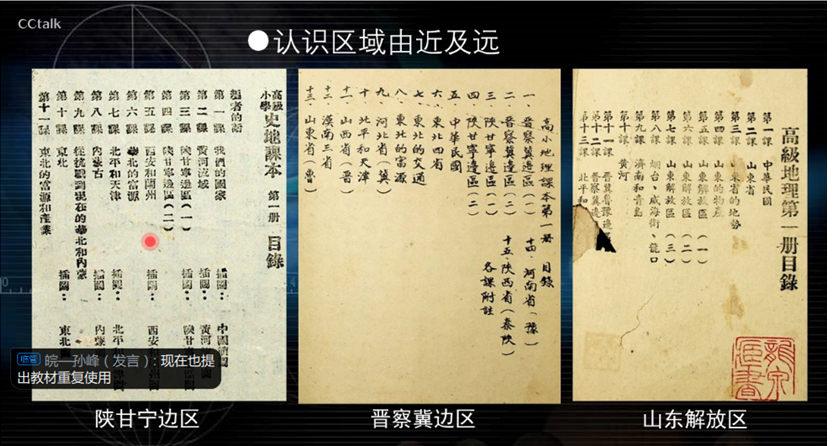 CCtalk
●认识区域由近及远
高級小學 史地課本 第一册 目錄
編者的話
第一課 我們的國家 插圖：
第二課 黃河流域 插圖：黃河
第三課 陝甘寧邊區（一） 插圖：陝甘
第四課 陝甘寧邊區（二）
第五課 西安和蘭州 插圖：西安
第六課 華北的富源
第七課 北平和天津 插圖：北平
第八課 內蒙古 插圖：內蒙
第九課 從抗戰到現在的華北和內蒙
第十課 東北 插圖：東北
第十一課 東北的富源和產業
高小地理課本第一册 目錄
一、晉察冀邊區（一）
二、晉察冀邊區（二）
三、陝甘寧邊區（一）
四、陝甘寧邊區（二）
五、中華民國
六、東北四省
七、東北的交通
八、東北的富源
九、河北省（冀）
十、北平和天津
十一、山西省（晉）
十二、漠南三省
十三、山東省（魯）
十四、河南省（豫）
十五、陝西省（秦陝）
各課附註
高級地理第一册目錄
第一課 中華民國
第二課 山東省
第三課 山東省的地勢
第四課 山東的物產
第五課 山東解放區（一）
第六課 山東解放區（二）
第七課 山東解放區（三）
第八課 烟台、威海衛、龍口
第九課 濟南和青島
第十課 黃河
第十一課 晉冀魯豫邊區
第十二課 晉察冀邊
第十三課 北平和
皖—孙峰（发言）: 现在也提
出教材重复使用
陕甘宁边区
晋察冀边区
山东解放区